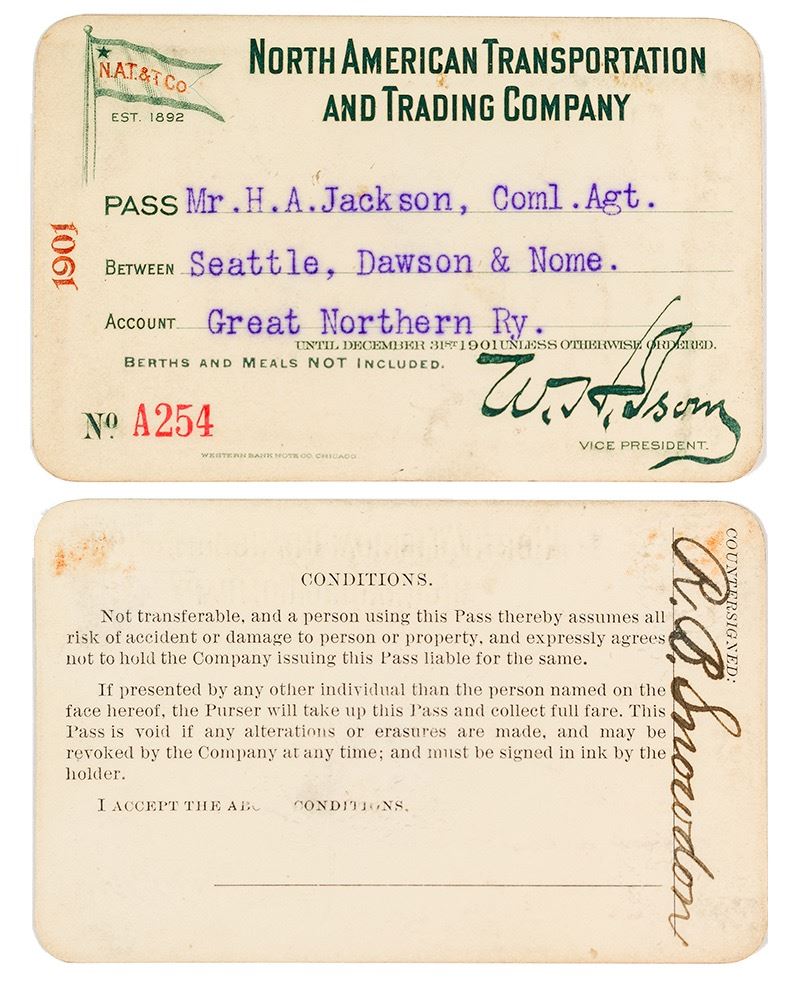 N.A.T.&T.Co
EST. 1892
NORTH AMERICAN TRANSPORTATION
AND TRADING COMPANY
1901
PASS Mr.H.A.Jackson, Coml.Agt.
BETWEEN Seattle, Dawson & Nome.
ACCOUNT Great Northern Ry.
UNTIL DECEMBER 31ST 1901 UNLESS OTHERWISE ORDERED.
BERTHS AND MEALS NOT INCLUDED.
W.H.Isom
VICE PRESIDENT.
No A254
WESTERN BANK NOTE CO. CHICAGO
CONDITIONS.
Not transferable, and a person using this Pass thereby assumes all
risk of accident or damage to person or property, and expressly agrees
not to hold the Company issuing this Pass liable for the same.
If presented by any other individual than the person named on the
face hereof, the Purser will take up this Pass and collect full fare. This
Pass is void if any alterations or erasures are made, and may be
revoked by the Company at any time; and must be signed in ink by the
holder.
I ACCEPT THE CONDITIONS.
COUNTERSIGNED:
R.B.Snowdon